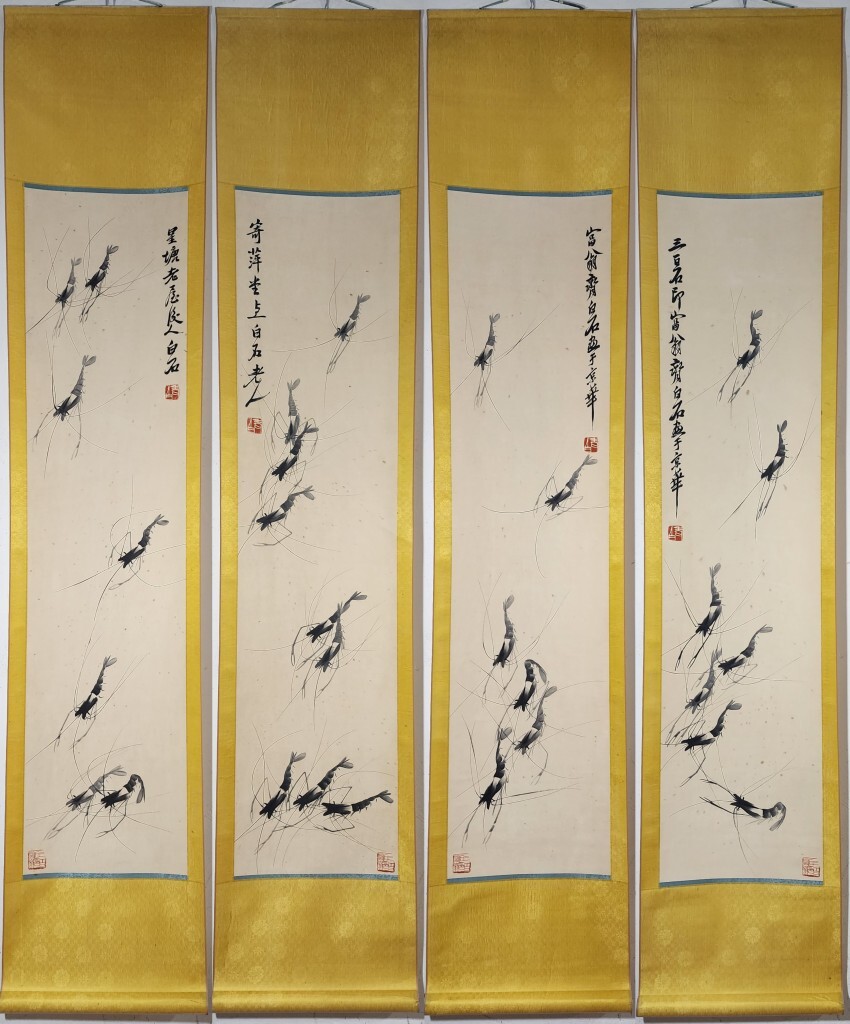 星塘老屋後人白石
寄萍堂上白石老人
富翁齊白石画于京華
三百石印富翁齊白石画于京華